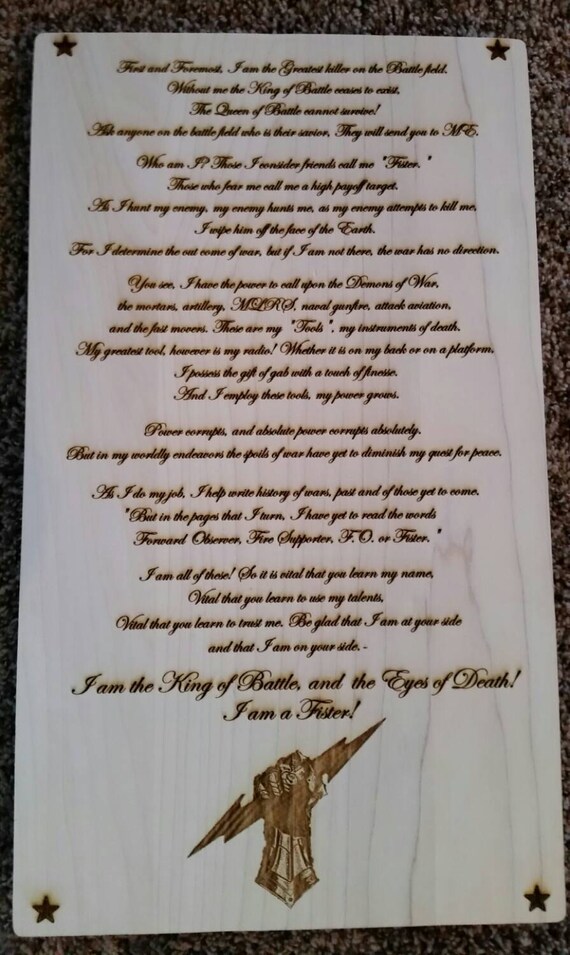 First and Foremost, I am the Greatest killer on the Battle field.
Without me the King of Battle ceases to exist.
The Queen of Battle cannot survive!
Ask anyone on the battle field who is their savior, They will send you to ME.
Who am I? Those I consider friends call me "Fister."
Those who fear me call me a high payoff target.
As I hunt my enemy, my enemy hunts me, as my enemy attempts to kill me,
I wipe him off the face of the Earth.
For I determine the out come of war, but if I am not there, the war has no direction.
You see, I have the power to call upon the Demons of War,
the mortars, artillery, MLRS, naval gunfire, attack aviation,
and the fast movers. These are my "Tools", my instruments of death.
My greatest tool, however is my radio! Whether it is on my back or on a platform,
I possess the gift of gab with a touch of finesse.
And I employ these tools, my power grows.
Power corrupts, and absolute power corrupts absolutely.
But in my worldly endeavors the spoils of war have yet to diminish my quest for peace.
As I do my job, I help write history of wars, past and of those yet to come.
"But in the pages that I turn, I have yet to read the words
Forward Observer, Fire Supporter, F.O. or Fister."
I am all of these! So it is vital that you learn my name,
Vital that you learn to use my talents,
Vital that you learn to trust me. Be glad that I am at your side
and that I am on your side.-
I am the King of Battle, and the Eyes of Death!
I am a Fister!